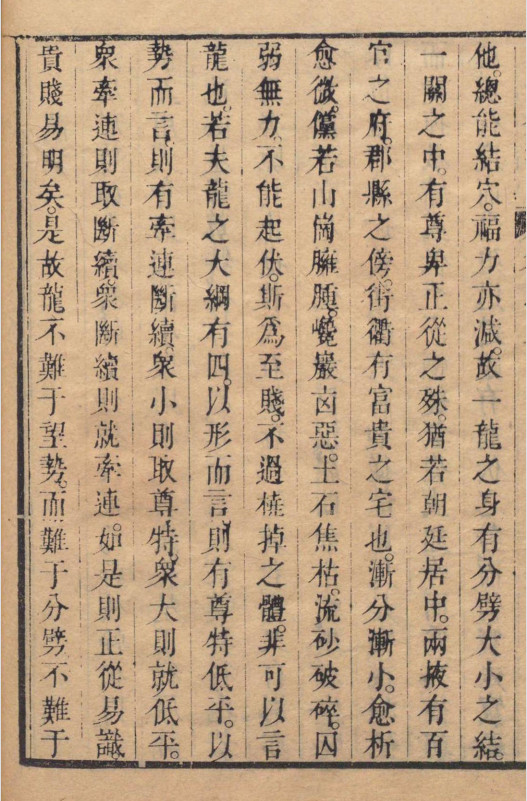 他。總能結穴。福力亦減。故一龍之身有分劈大小之結。
一關之中。有尊卑正從之殊。猶若朝廷居中。兩掖有百
官之府。郡縣之傍。街衢有富貴之宅也。漸分漸小。愈析
愈微。儻若山崗臃腫。巉巖凶惡。土石焦枯。流砂破碎。囚
弱無力。不能起伏。斯爲至賤。不過橈掉之體。非可以言
龍也。若夫龍之大綱有四。以形而言。則有尊特低平。以
勢而言。則有牽連斷續。衆小則取尊特。衆大則就低平。
衆牽連則取斷續。衆斷續則就牽連。如是則正從易識。
貴賤易明矣。是故龍不難于望勢。而難于分劈。不難于